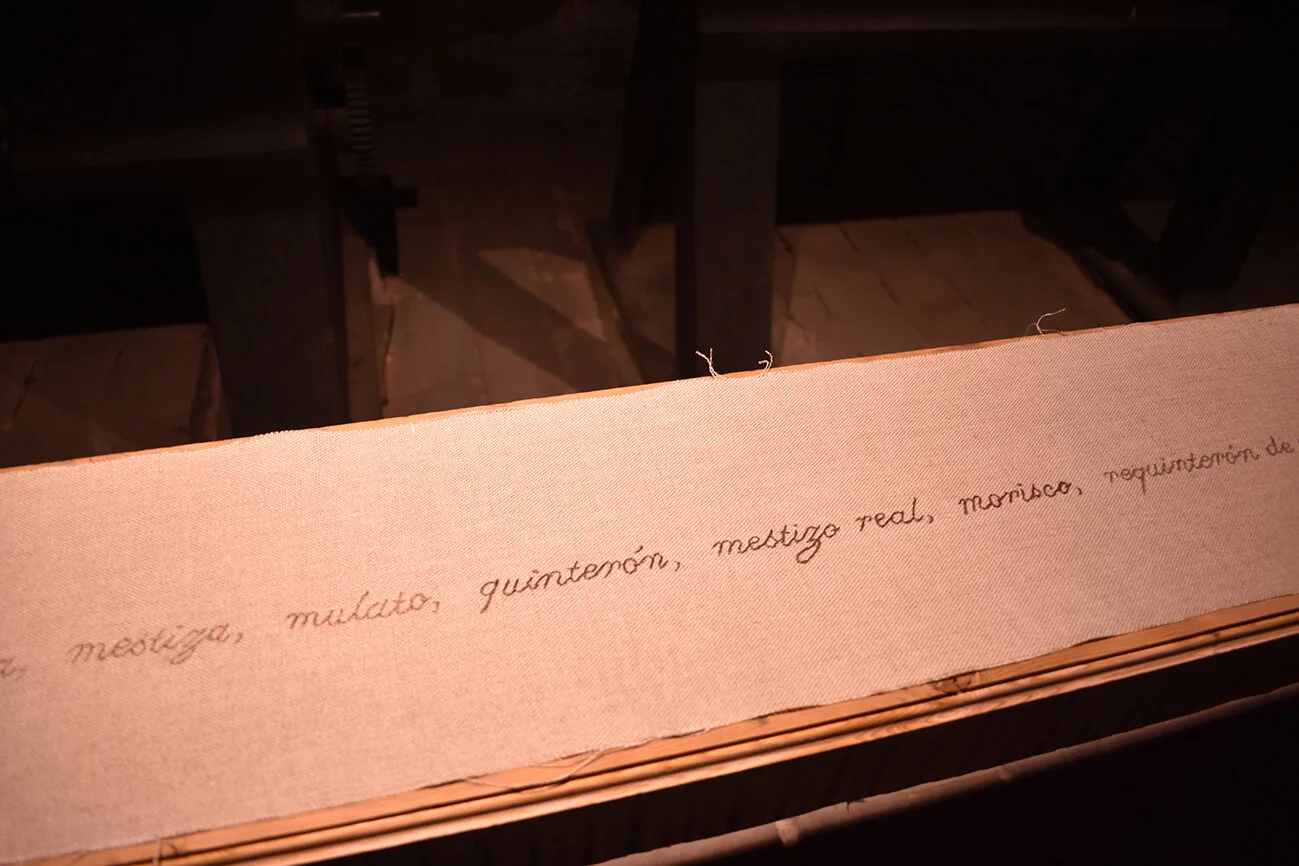 mestiza, mulato, quinterón, mestizo real, morisco, requinterón de